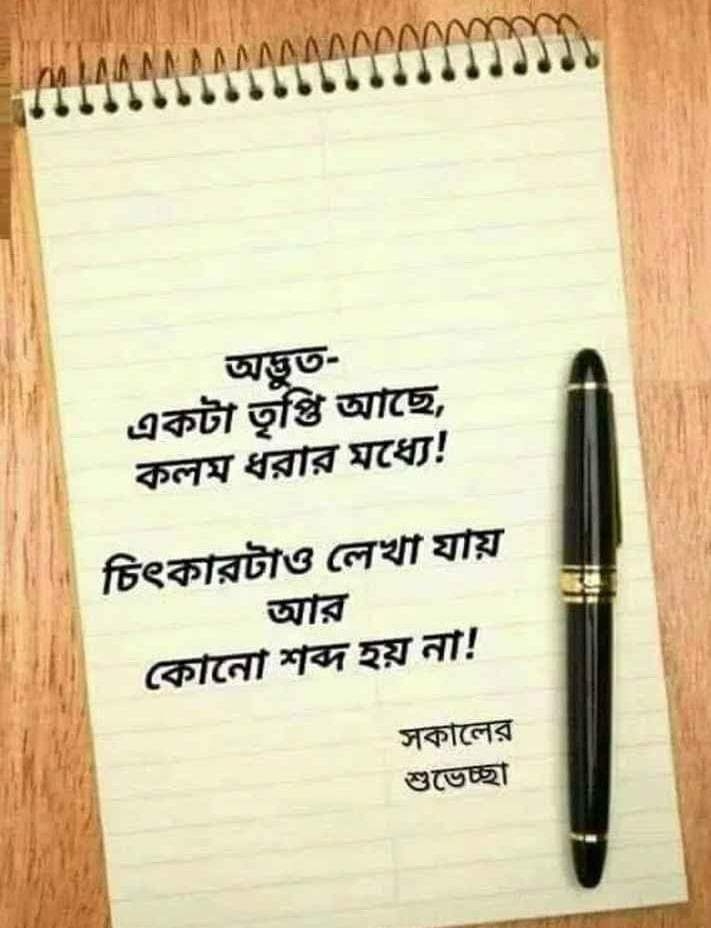 অদ্ভুত-
একটা তৃপ্তি আছে,
কলম ধরার মধ্যে!
চিৎকারটাও লেখা যায়
আর
কোনো শব্দ হয় না!
সকালের
শুভেচ্ছা